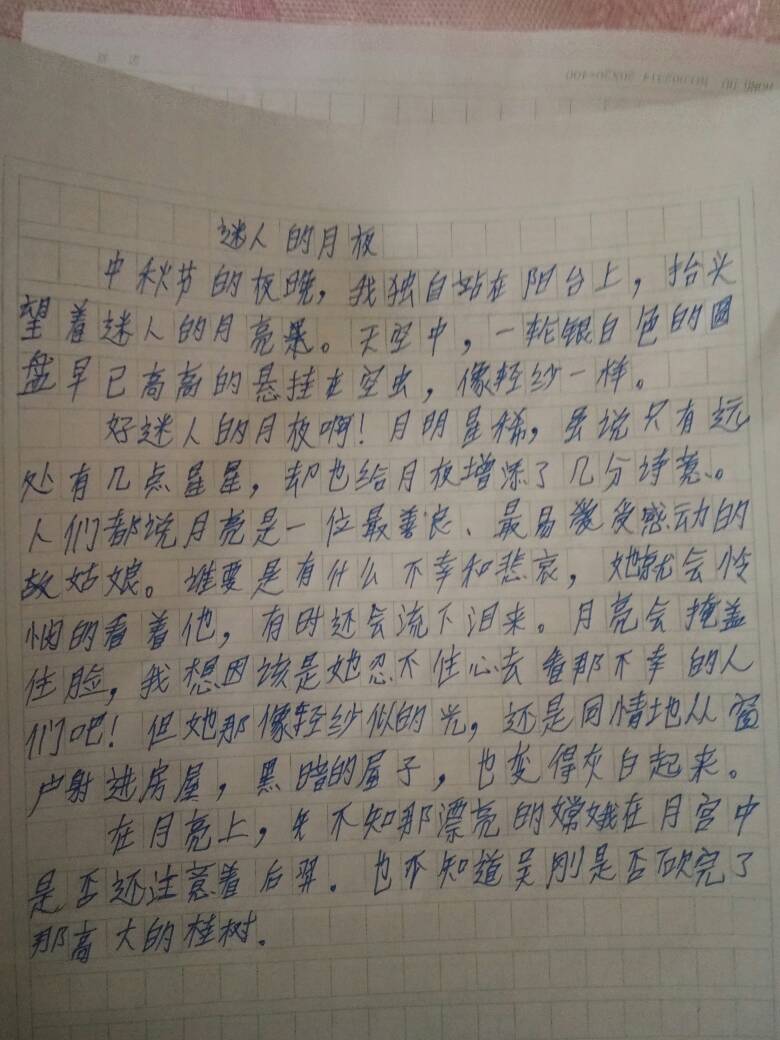 迷人的月夜
中秋节的夜晚，我独自站在阳台上，抬头
望着迷人的月亮。天空中，一轮银白色的圆
盘早已高高的悬挂在空中，像轻纱一样。
好迷人的月夜啊！月明星稀，虽说只有远
处有几点星星，却也给月夜增添了几分诗意。
人们都说月亮是一位最善良、最易受感动的
故姑娘。谁要是有什么不幸和悲哀，她就会怜
悯的看着他，有时还会流下泪来。月亮会掩盖
住脸，我想因该是她忍不住心去看那不幸的人
们吧！但她那像轻纱似的光，还是同情地从窗
户射进房屋，黑暗的屋子，也变得灰白起来。
在月亮上，不知那漂亮的嫦娥在月宫中
是否还注意着后羿。也不知道吴刚是否砍完了
那高大的桂树。